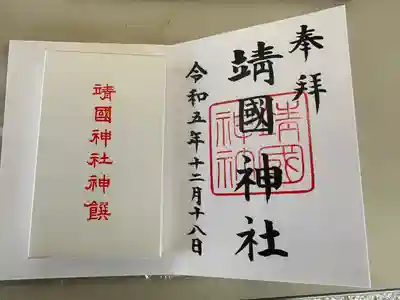 奉拝
靖國神社
令和五年十二月十八日
靖國神社神饌